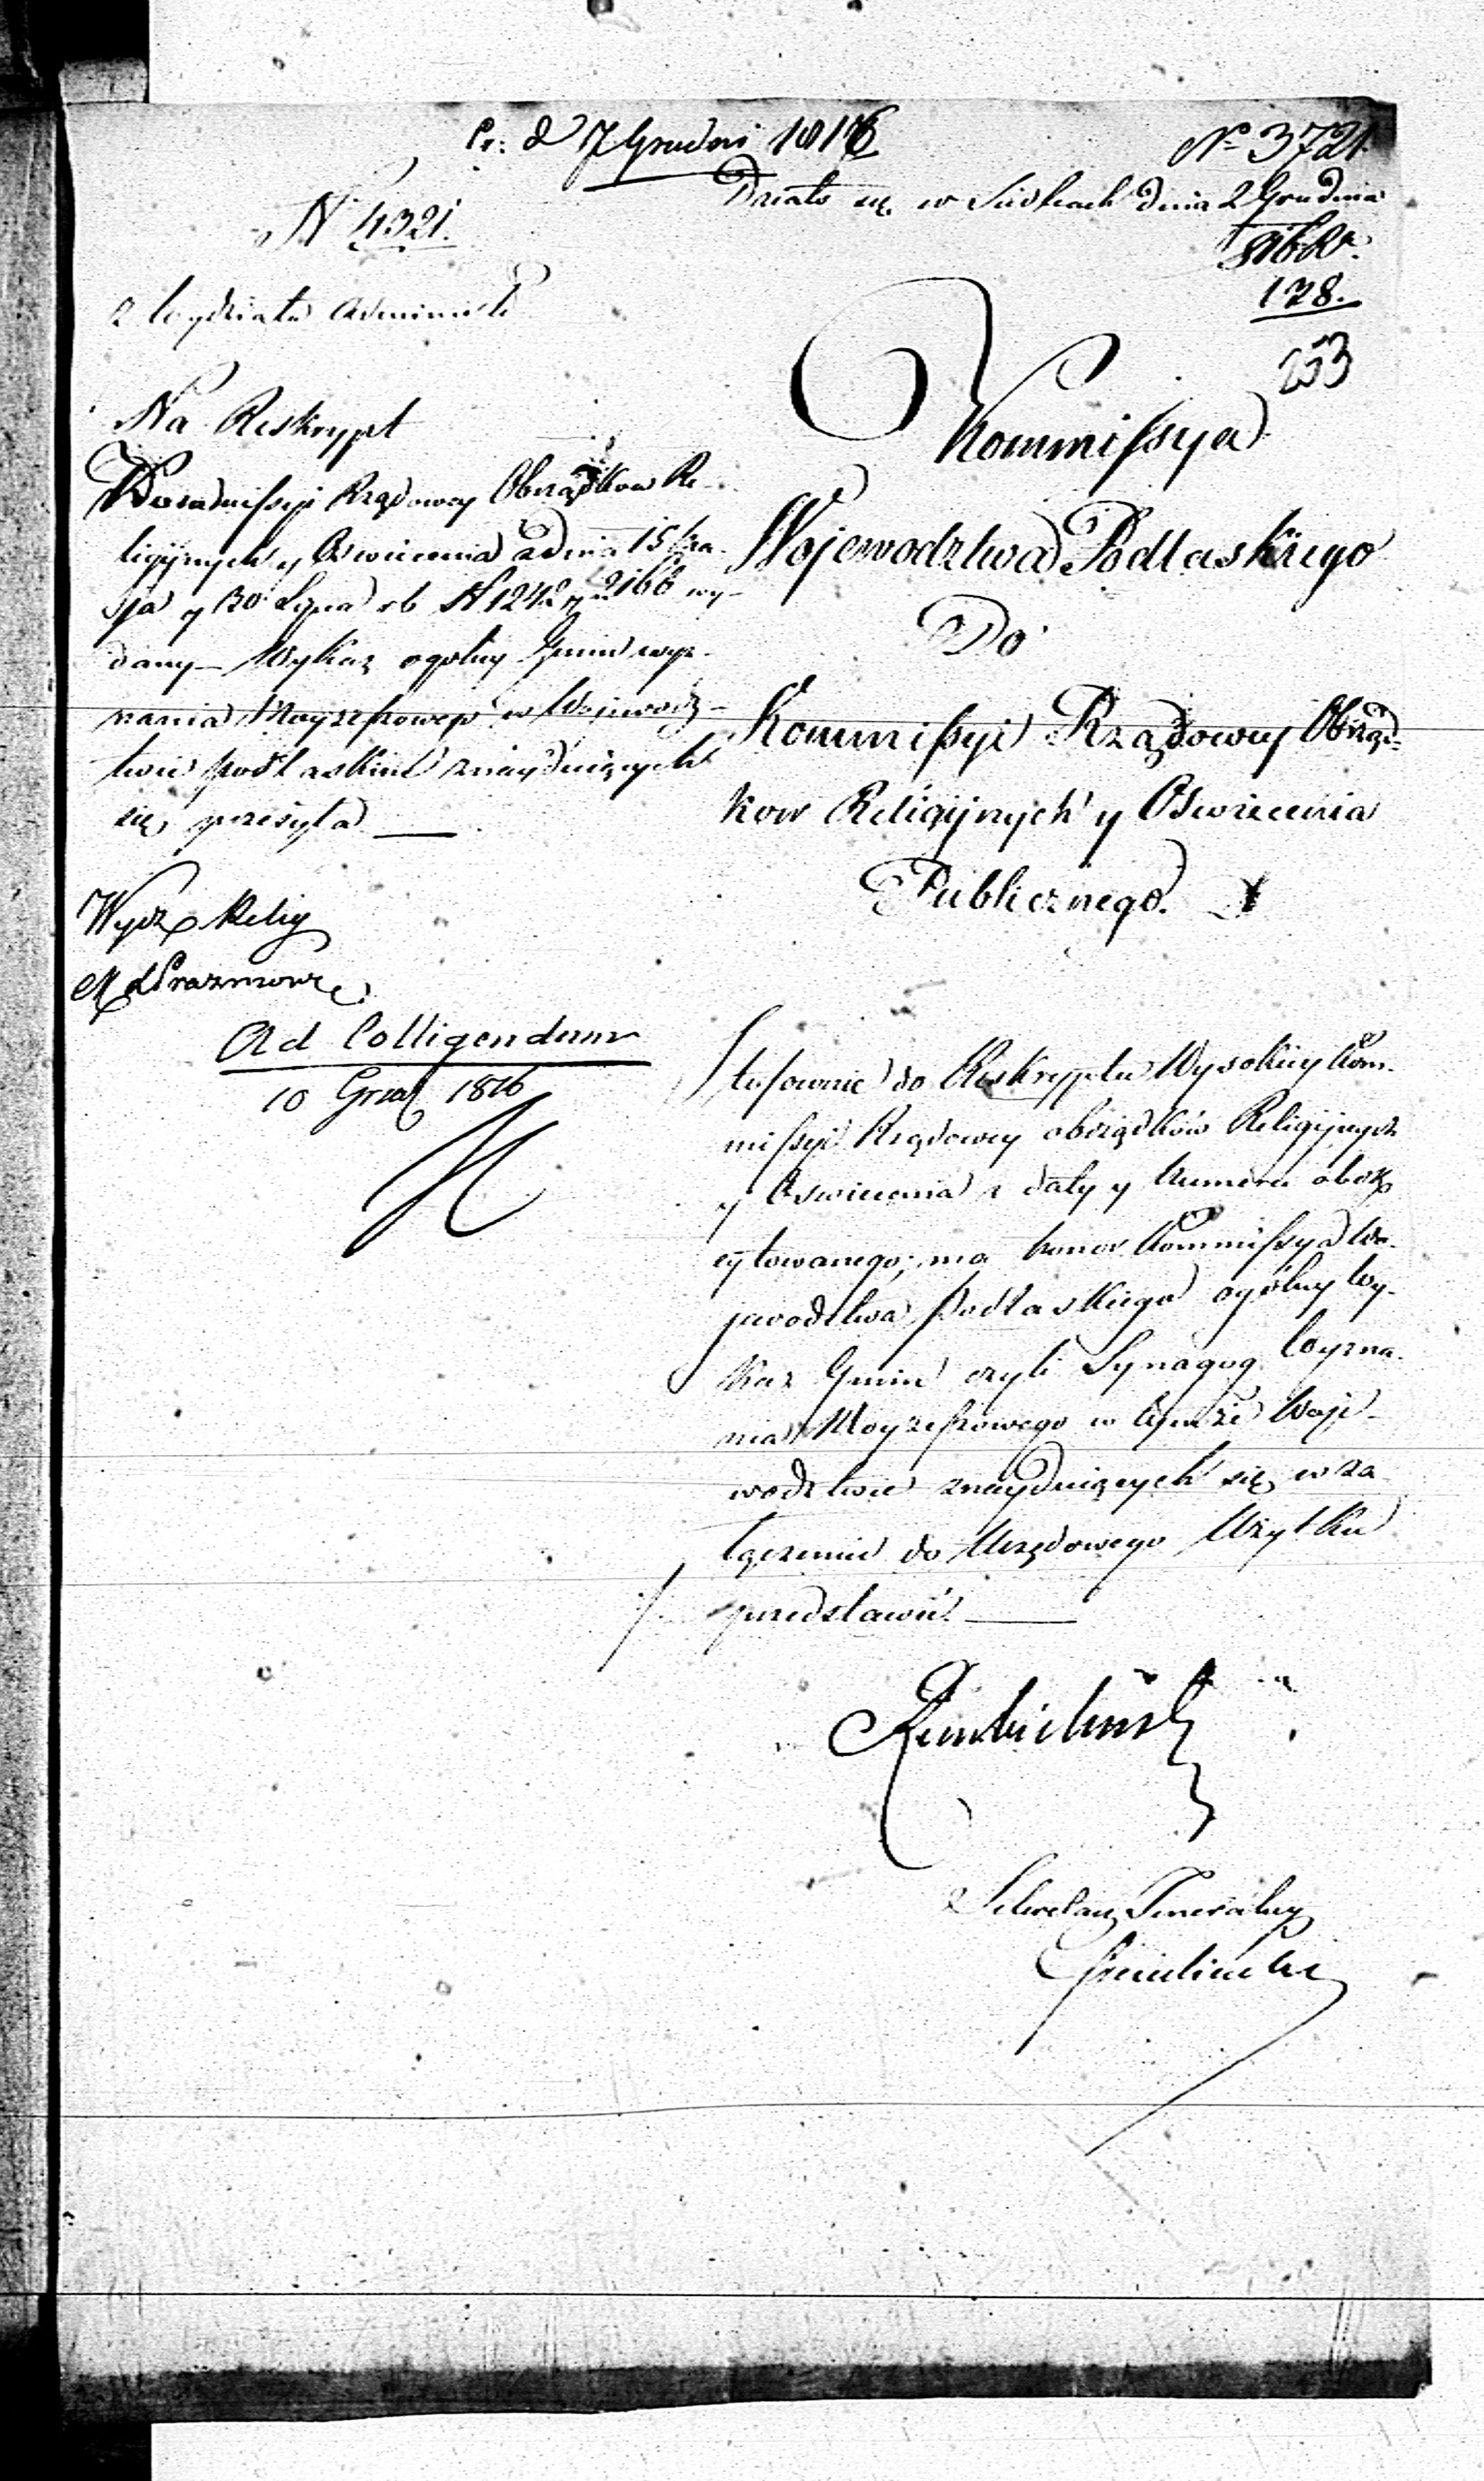 Pr: d 7 Grudni 1816
No 3721.
Działo się w Siedlcach dnia 2 Grudnia
1816 Rr.
128.
253
N 4321.
z Wydziału Administ
Na Reskrypt
Kommissyi Rządowey Obrządkow Re-
ligijnych y Oswiecenia z dnia 15 Ma-
ja y 30 Lipca rb N 1242 y 2166 wy-
dany – Wykaz ogolny Gmin wyz-
nania Moyzeszowego w Wojewodz-
twie podlaskim znayduiących
się przesyła —
Wydz Relig
Ad Colligendum
10 Grud 1816
Kommissya
Wojewodztwa Podlaskiego
Do
Kommissyi Rządowey Obrząd-
kow Religijnych y Oswiecenia
Publicznego.
Stosownie do Reskryptu Wysokiey Kom-
missyi Rządowey obrządków Religijnych
y Oswiecenia z daty y Numeru obok
cytowanego; ma honor Kommissya Wo-
jewodztwa Podlaskiego ogólny Wy-
kaz Gmin czyli Synagog Wyzna-
nia Moyzeszowego w tymże Woje-
wodztwie znayduiących się w za
łączeniu do Urzędowego Użytku
przedstawić. —
Rembielinski
Sekretarz Generalny